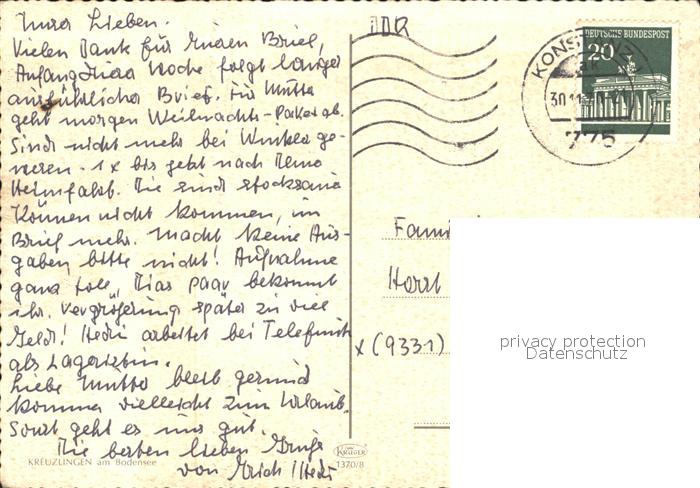 Ihr Lieben.
Vielen Dank für Euren Brief,
Anfang Woche folgt langer
ausführlicher Brief. Für Mutti
geht morgen Weihnachts-Paket ab.
Sind nicht mehr bei Winkler ge-
wesen. 1x bis jetzt nach
Heimfahrt. Die sind stocksauer
Können nicht kommen, im
Brief mehr. Macht keine Aus-
gaben bitte nicht! Aufnahme
ganz toll, Dias paar bekommt
Ihr. Vergrößerung später zu viel
Geld! Hedi arbeitet bei Telefunk
als Lageristin.
Liebe Mutti bleib gesund
komme vielleicht zum Urlaub.
Sonst geht es uns gut.
Die besten lieben Grüße
von Erich / Hedi
KREUZLINGEN am Bodensee
KRÜGER
1370/8
DDR
KONSTANZ
30.11.
775
DEUTSCHE BUNDESPOST
20
Fami
Horst
x (9331)
privacy protection
Datenschutz